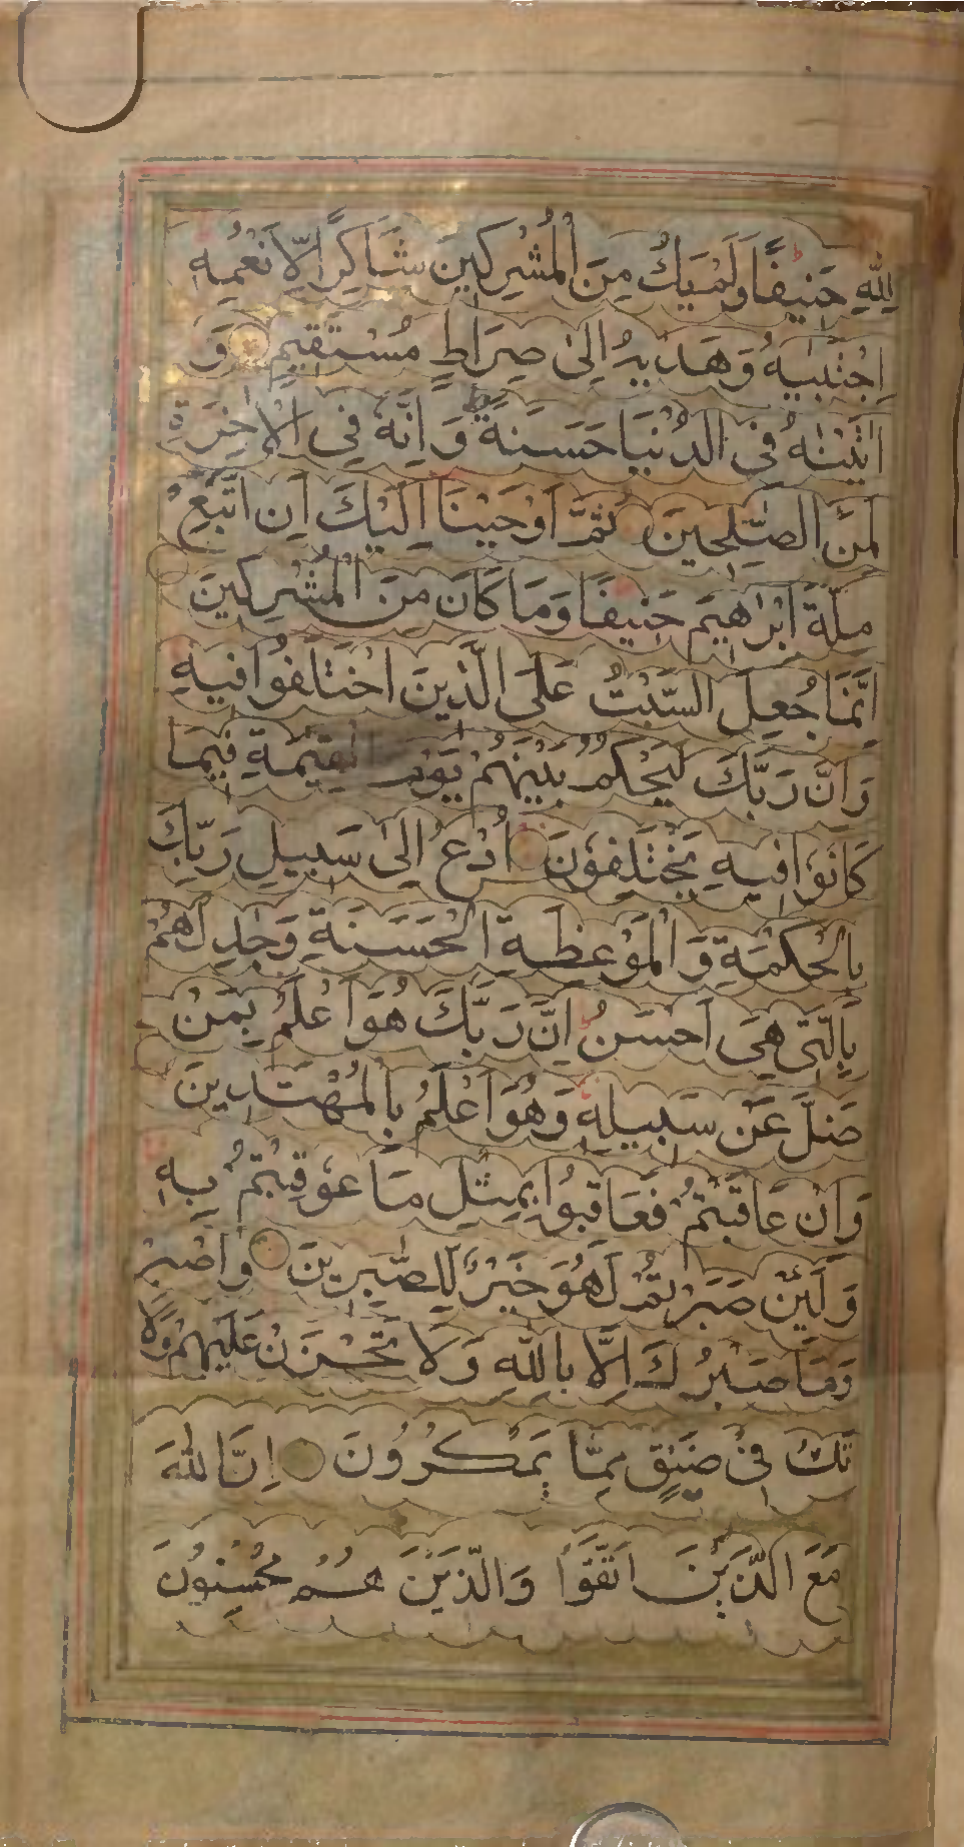 لِلّٰهِ حَنِيفًا وَلَمْ يَكُ مِنَ الْمُشْرِكِينَ شَاكِرًا لِاَنْعُمِهِ
اِجْتَبٰيهُ وَهَدٰيهُ اِلىٰ صِرَاطٍ مُسْتَقِيمٍ وَ
اٰتَيْنٰهُ فِى الدُّنْيَا حَسَنَةً ط وَاِنَّهُ فِى الْاٰخِرَةِ
لَمِنَ الصّٰلِحِينَ ثُمَّ اَوْحَيْنَا اِلَيْكَ اَنِ اتَّبِعْ
مِلَّةَ اِبْرٰهِيمَ حَنِيفًا وَمَا كَانَ مِنَ الْمُشْرِكِينَ
اِنَّمَا جُعِلَ السَّبْتُ عَلَى الَّذِينَ اخْتَلَفُوا فِيهِ
وَاِنَّ رَبَّكَ لَيَحْكُمُ بَيْنَهُمْ يَوْمَ الْقِيٰمَةِ فِيمَا
كَانُوا فِيهِ يَخْتَلِفُونَ اُدْعُ اِلىٰ سَبِيلِ رَبِّكَ
بِالْحِكْمَةِ وَالْمَوْعِظَةِ الْحَسَنَةِ وَجَادِلْهُمْ
بِالَّتِى هِىَ اَحْسَنُ اِنَّ رَبَّكَ هُوَ اَعْلَمُ بِمَنْ
ضَلَّ عَنْ سَبِيلِهِ وَهُوَ اَعْلَمُ بِالْمُهْتَدِينَ
وَاِنْ عَاقَبْتُمْ فَعَاقِبُوا بِمِثْلِ مَا عُوقِبْتُمْ بِهِ
وَلَئِنْ صَبَرْتُمْ لَهُوَ خَيْرٌ لِلصّٰبِرِينَ وَاصْبِرْ
وَمَا صَبْرُكَ اِلَّا بِاللّٰهِ وَلَا تَحْزَنْ عَلَيْهِمْ وَلَا
تَكُ فِى ضَيْقٍ مِمَّا يَمْكُرُونَ اِنَّ اللّٰهَ
مَعَ الَّذِينَ اتَّقَوْا وَالَّذِينَ هُمْ مُحْسِنُونَ